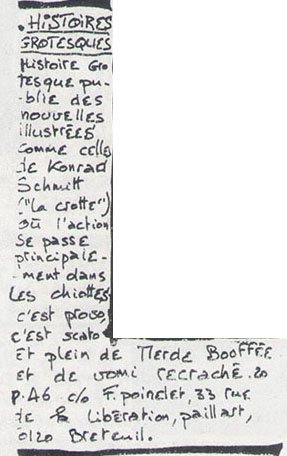 . HISTOIRES
GROTESQUES
Histoire Gro
tesque pu-
-blie des
nouvelles
illustrées
comme celles
de Konrad
Schmitt
("la crotte")
où l'action
se passe
principale-
-ment dans
les chiottes
c'est prose,
c'est scato
et plein de merde Boofféé
et de vomi recraché. 20
p. A6 c/o F. poinelet, 33 rue
de la Libération, paillart,
60120 Breteuil.